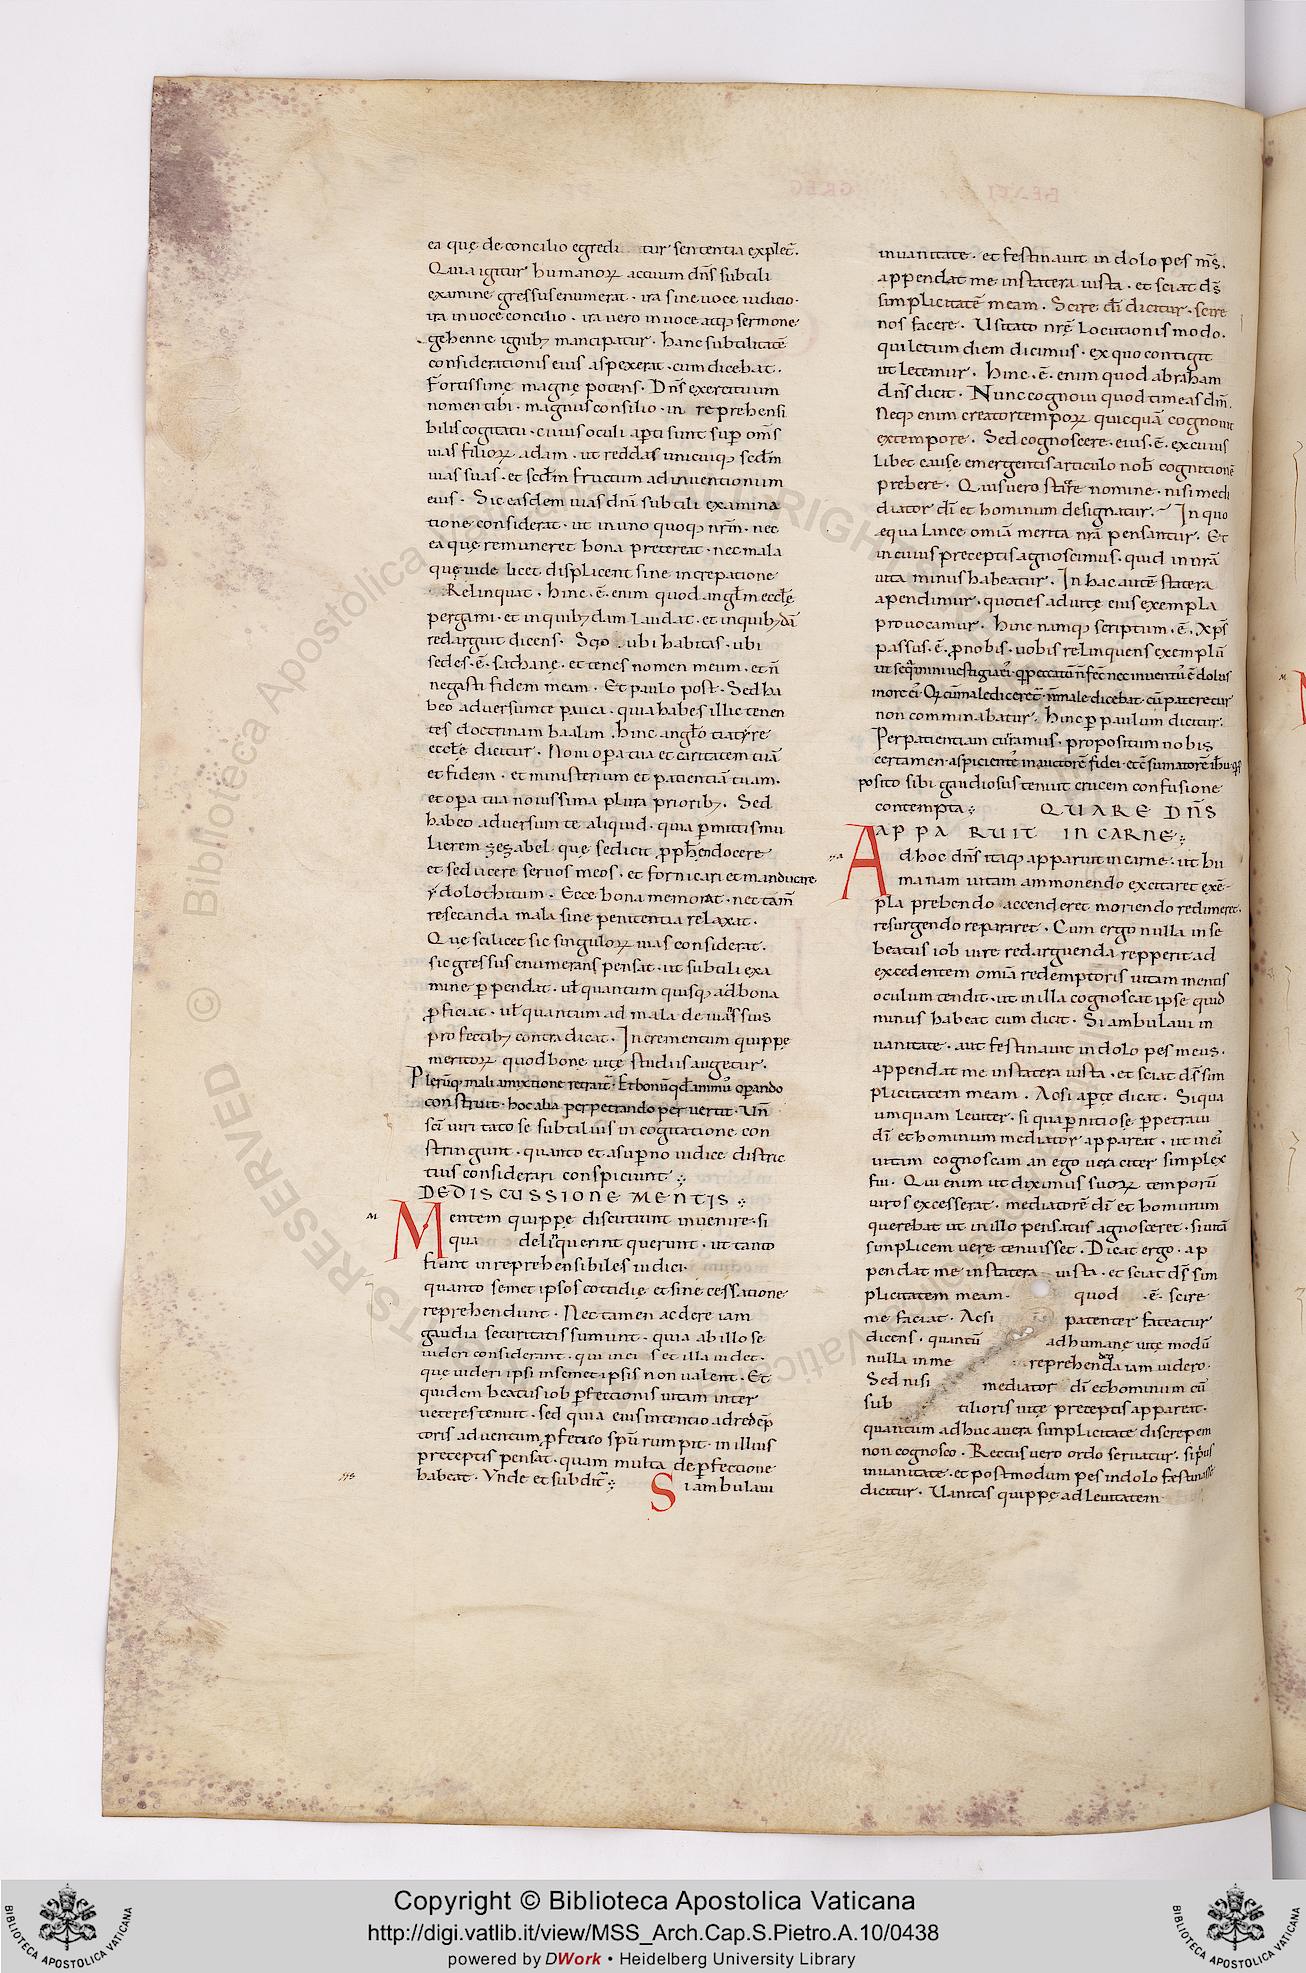 ea quę de concilio egredi tur sententia explet̄.
Quia igitur humanoꝝ actuum dn̄s subtili
examine gressus enumerat · ira sine uoce iudicio ·
ira in uoce concilio · ira uero in uoce atqꝫ sermone
gehenne ignibꝫ mancipatur · hanc subtilitatē
considerationis eius aspexerat · cum dicebat ·
Fortissime magnę potens · Dn̄s exercituum
nomen tibi · magnus consilio · in reprehensi
bilis cogitatu · cuius oculi aꝑti sunt suꝑ om̄s
uias filioꝝ adam · ut reddas unicuiqꝫ scdm̄
uias suas · et scdm̄ fructum adinuentionum
eius · Sic easdem uias dn̄i subtili examina
tione considerat · ut in uno quoqꝫ nr̄m · nec
ea que remuneret bona pretereat · nec mala
quę uide licet displicent sine increpatione
Relinquat · hinc · ē · enim quod angl̄m eccl̄ę
pergami · et in quibꝫdam laudat · et in quibꝫdā
redarguit dicens · Scio · ubi habitas · ubi
sedes · ē · sathanę · et tenes nomen meum · et n̄
negasti fidem meam · Et paulo post · Sed ha
beo aduersum te pauca · quia habes illic tenen
tes doctrinam baalim · hinc angl̄o tiatyre
eccl̄ę dicitur · Noui oꝑa tua et caritatem tuā
et fidem · et ministerium et patientiā tuam ·
et oꝑa tua nouissima plura prioribꝫ · Sed
habeo aduersum te aliquid · quia ꝑmittis mu
lierem zezabel · quę se dicit ꝓph̄en docere
et seducere seruos meos · et fornicari et manducare
ydolothitum · Ecce bona memorat · nec tam̄
resecanda mala sine penitentia relaxat ·
Quę scilicet sic singuloꝝ uias considerat ·
sic gressus enumerans pensat · ut subtili exa
mine ꝑpendat · ul̄ quantum quisqꝫ ad bona
ꝓficiat · ul̄ quantum ad mala deuians suis
profectibꝫ contradicat · Incrementum quippę
meritoꝝ quod bonę uitę studiis augetur ·
Plerūqꝫ mali amixtione retrait̄ · Et bonū qd̄ animus oꝑando
construit · hoc alia perpetrando peruertit · Un̄
sc̄i uiri tato se subtilius in cogitatione con
stringunt · quanto et a suꝑno iudice distric
tius considerari conspiciunt ·
DE DISCUSSIONE MENTIS ·
Mentem quippe discutiunt inuenire · si
qua deliquerint querunt · ut tanto
fiant inreprehensibiles iudici ·
quanto semet ipsos cottidię et sine cessatione
reprehendunt · Nec tamen ac dere iam
gaudia securitatis sumunt · quia ab illo se
uideri considerant · qui in ei s et illa uidet ·
que uideri ipsi in semet ipsis non ualent · Et
quidem beatus iob ꝑfectionis uitam inter
ueteres tenuit · sed quia eius intentio ad redēp
toris aduentum ꝓfetico spū rumpit · in illius
preceptis pensat · quam multa de ꝑfectione
habeat · Vnde et subdit̄ · Si ambulaui
in uanitate · et festinauit in dolo pes m̄s ·
appendat me in statera iusta · et sciat ds̄
simplicitatē meam · Scire dī dicitur · scire
nos facere · Usitato nr̄ę locutionis modo ·
qui letum diem dicimus · ex quo contigit
ut letemur · hinc · ē · enim quod abraham
dn̄s dicit · Nunc cognoui quod timeas dm̄ ·
Neqꝫ enim creator tempoꝝ quicquā cognouit
ex tempore · Sed cognoscere · eius · ē · ex cuius
libet causę emergentis articulo nob̄ cognitionē
prebere · Quis uero staterę nomine · nisi medi
diator dī et hominum designatur · In quo
equa lance omīa merita nr̄a pensantur · Et
in cuius preceptis agnoscimus · quid in nr̄a
uita minus habeatur · In hac autē statera
apendimur · quoties ad uitę eius exempla
prouocamur · hinc namqꝫ scriptum · ē · xp̄s
passus · ē · ꝓ nobis · uobis relinquens exemplū
non comminabatur · hinc ꝑ paulum dicitur ·
Per patientiam curramus · propositum nobis
posito sibi gaudio sustenuit crucem confusione
contempta · QUARE DN̄S
APPARUIT IN CARNE ·
Ad hoc dn̄s itaqꝫ apparuit in carne · ut hu
manam uitam ammonendo excitaret exē
pla prebendo accenderet moriendo redimeret ·
resurgendo repararet · Cum ergo nulla in se
beatus iob uire redarguenda repperit ad
excedentem omīa redemptoris uitam mentis
oculum tendit · ut in illa cognoscat ipse quid
minus habeat cum dicit · Si ambulaui in
uanitate · aut festinauit in dolo pes meus ·
appendat me in statera iusta · et sciat ds̄ sim
plicitatem meam · Acsi aꝑte dicat · Si qua
umquam leuiter · si qua ꝑnitiose ꝑpetraui
dī et hominum mediator appareat · ut in ei
uitam cognoscam an ego ueraciter simplex
fui · Qui enim ut diximus suoꝝ temporū
uiros excesserat · mediatorē dī et hominum
querebat ut in illo pensatus agnosceret · si uitā
simplicem uere tenuisset · Dicat ergo · ap
pendat me in statera iusta · et sciat ds̄ sim
plicitatem meam · quod · ē · scire
me faciat · Acsi patenter fateatur
dicens · quantū ad humanę uitę modū
nulla in me reprehendenda iam uidero ·
Sed nisi mediator dī et hominum cū
sub tilioris uitę preceptis appareat ·
quantum adhuc a uera simplicitate discrepem
non cognosco · Rectus uero ordo seruatur · si prius
in uanitate · et postmodum pes in dolo festinasse
dicitur · Uanitas quippę ad leuitatem
Copyright © Biblioteca Apostolica Vaticana
http://digi.vatlib.it/view/MSS_Arch.Cap.S.Pietro.A.10/0438
powered by DWork • Heidelberg University Library